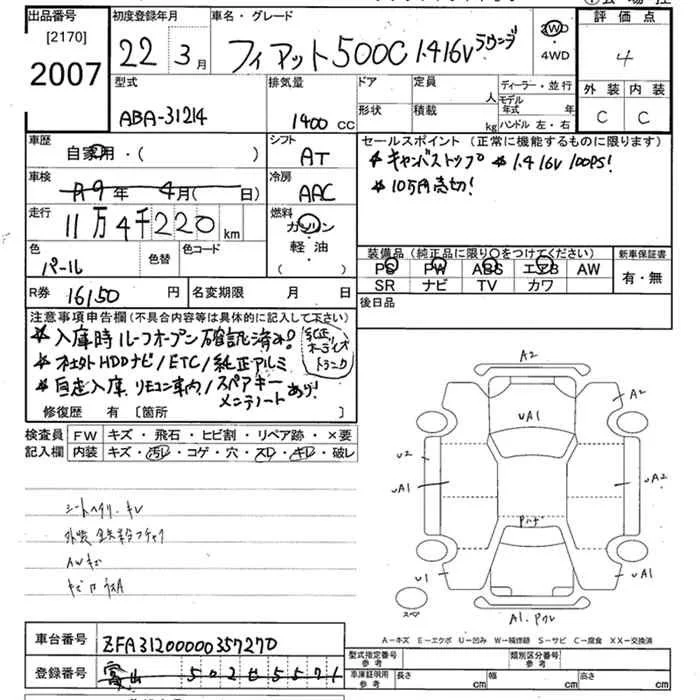 出品番号 初度登録年月 車名・グレード 評価点
[2170]
2007 22 3月 フィアット500C 1.4 16V ラウンジ 2WD・4WD 4
型式 排気量 ドア 定員 人 ディーラー・並行 外装 内装
ABA-31214 1400 CC 形状 積載 kg モデル年式 年 ハンドル 左・右 C C
車歴 シフト セールスポイント (正常に機能するものに限ります)
自家用・( ) AT ★キャンバストップ ★1.4 16V 100PS!
車検 9年 4月( 日) 冷房 AAC ★10万円売切!
走行 燃料
11万4千220km ガソリン
色 色替 色コード 軽・油
パール ( )
装備品(純正品に限り○をつけてください) 新車保証書
PS PW ABS エアB AW 有・無
SR ナビ TV カワ
R券 16150 円 名変期限 月 日 後日品
注意事項申告欄(不具合内容等は具体的に記入して下さい)
★入庫時ルーフオープン確認済み!
★社外HDDナビ/ETC/純正アルミ
★自走入庫 リモコン車内/スペアキー
メンテノートあり!
純正オーディオトランク
修復歴 有 [箇所 ]
検査員記入欄 FW キズ・飛石・ヒビ割・リペア跡・×要
内装 キズ・汚レ・コゲ・穴・スレ・キレ・破レ
シートヘタリ・キレ
AWキズ
A2
A2
UA1
U2
UA1
UA2
U1
UA1
スペア
A1.
A-キズ E-エクボ U-凹み W-補修跡 S-サビ C-腐食 XX-交換済
車台番号 ZFA31200000357270
登録番号 富山 502 せ 5571
型式指定番号 参考 類別区分番号 参考
車庫証明用 参考 長さ cm 幅 cm 高さ cm